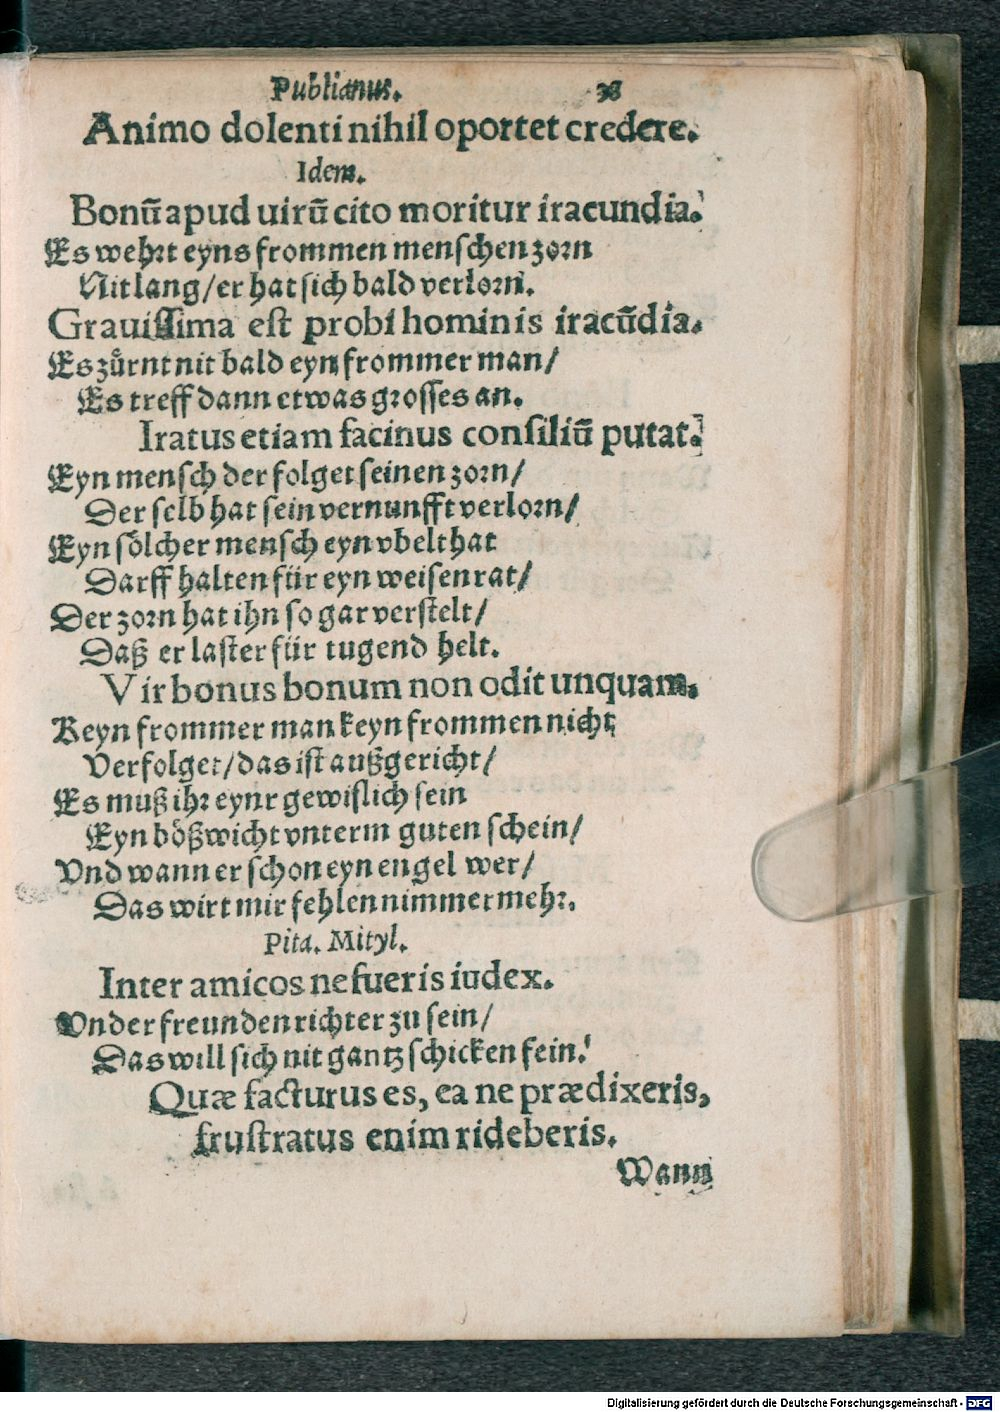 Publianus. 38
Animo dolenti nihil oportet credere.
Idem.
Bonũ apud uirũ cito moritur iracundia.
Es wehrt eyns frommen menschen zorn
Nit lang/ er hat sich bald verlorn.
Grauissima est probi hominis iracũdia.
Es zuͤrnt nit bald eyn frommer man/
Es treff dann etwas grosses an.
Iratus etiam facinus consiliũ putat.
Eyn mensch der folget seinen zorn/
Der selb hat sein vernunfft verlorn/
Eyn soͤlcher mensch eyn vbelthat
Darff halten für eyn weisen rat/
Der zorn hat ihn so gar verstelt/
Daß er laster für tugend helt.
Vir bonus bonum non odit unquam.
Keyn frommer man keyn frommen nicht
Verfolget/ das ist außgericht/
Es muß ihr eynr gewißlich sein
Eyn boͤßwicht vnterm guten schein/
Vnd wann er schon eyn engel wer/
Das wirt mir fehlen nimmer mehr.
Pita. Mityl.
Inter amicos ne fueris iudex.
Vnder freunden richter zu sein/
Das will sich nit gantz schicken fein.
Quæ facturus es, ea ne prædixeris,
frustratus enim rideberis.
Wann
Digitalisierung gefördert durch die Deutsche Forschungsgemeinschaft - DFG